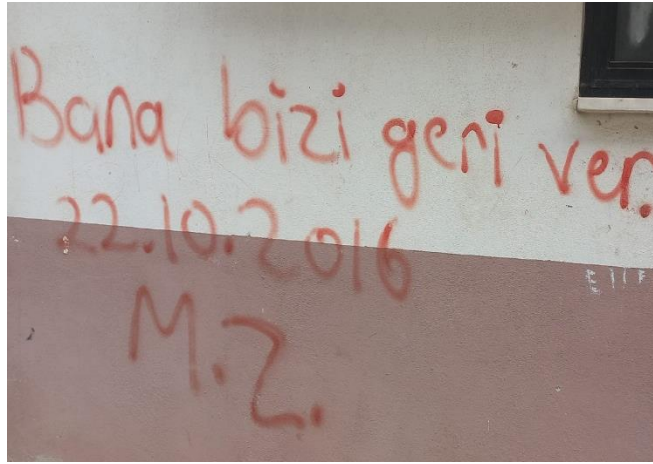 Bana bizi geri ver.
22.10.2016
M.Z.